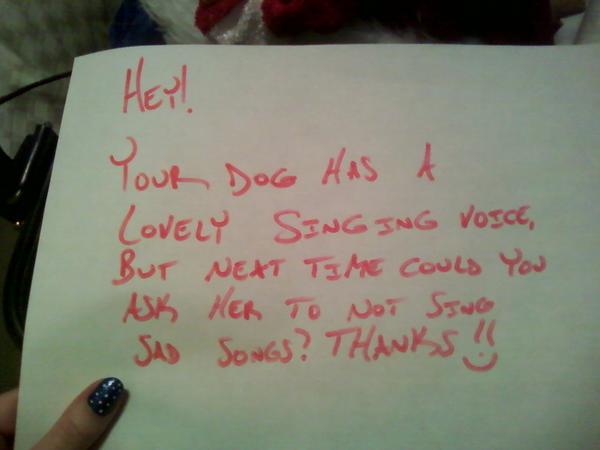 HEY!
YOUR DOG HAS A
LOVELY SINGING VOICE,
BUT NEXT TIME COULD YOU
ASK HER TO NOT SING
SAD SONGS? THANKS!!